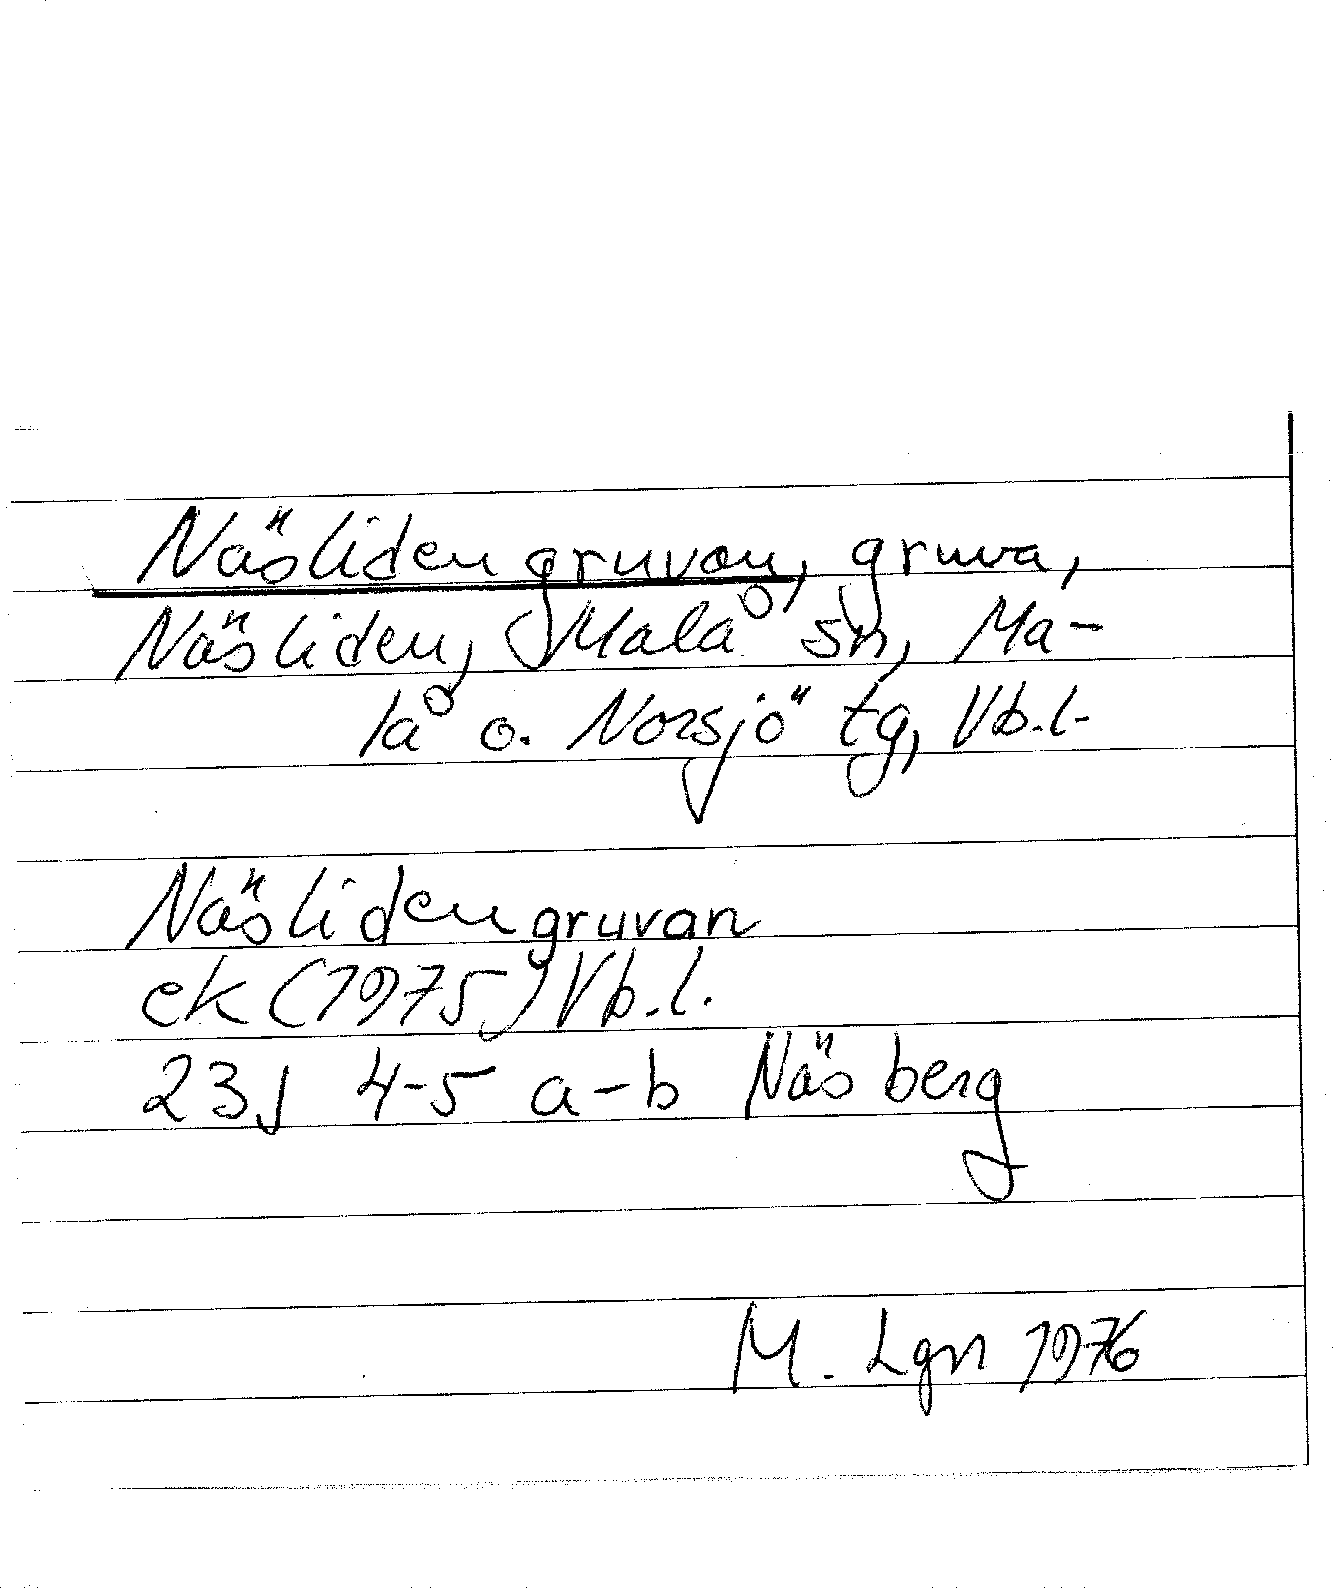 Näslidengruvan, gruva,
Näsliden, Malå sn, Ma-
lå o. Norsjö tg, Vb.l.
Näslidengruvan
ek (1975) Vb.l.
23J 4-5 a-b Näsberg
M. Lgn 1976